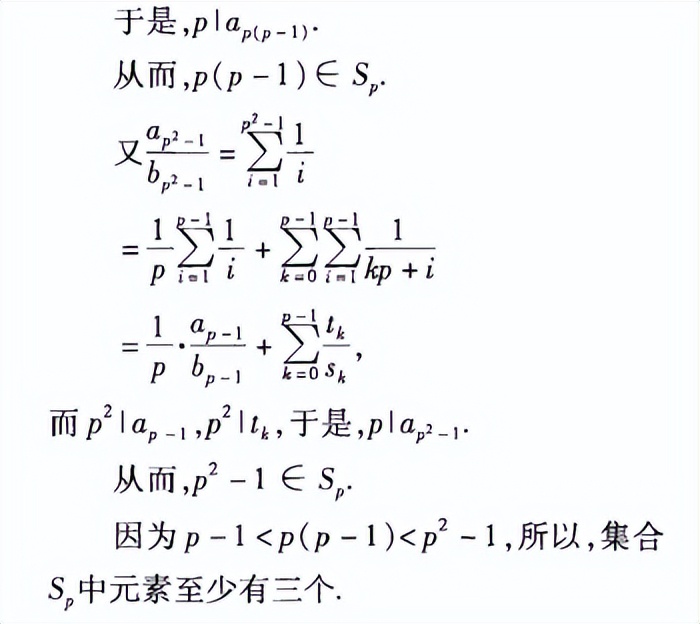 于是,p|a_{p(p-1)}.
从而,p(p-1)∈S_p.
又\frac{a_{p^2-1}}{b_{p^2-1}}=\sum_{i=1}^{p^2-1}\frac{1}{i}
=\frac{1}{p}\sum_{i=1}^{p-1}\frac{1}{i}+\sum_{k=0}^{p-1}\sum_{i=1}^{p-1}\frac{1}{kp+i}
=\frac{1}{p}·\frac{a_{p-1}}{b_{p-1}}+\sum_{k=0}^{p-1}\frac{t_k}{s_k},
而p^2|a_{p-1},p^2|t_k,于是,p|a_{p^2-1}.
从而,p^2-1∈S_p.
因为p-1<p(p-1)<p^2-1,所以,集合
S_p中元素至少有三个.